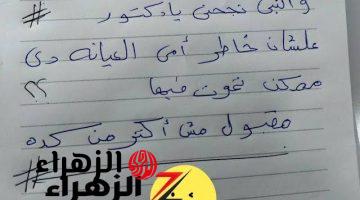 والنبي نجحني يا دكتور #
علشان خاطر أمي العيانه دي
ممكن تموت فيها ؟؟
مقبول مش أكتر من كده
#
الزهراء
الزهراء